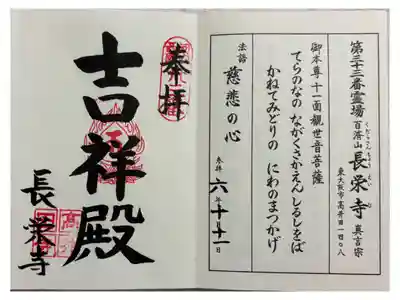 第三十三番霊場
百済山 長栄寺 真言宗
くだらさん ちょう えい じ
東大阪市高井田一ー〇八
御本尊 十一面観世音菩薩
てらのなの ながくさかえん しるしをば
かねてみどりの にわのまつかげ
法話
慈悲の心
参拝 六年十月十一日
奉拝
吉祥殿
長栄寺